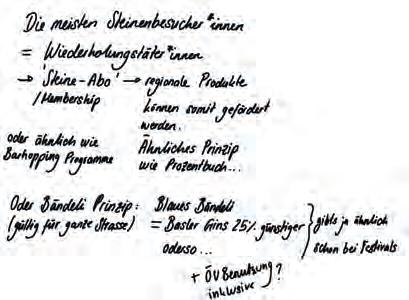 Die meisten Steinenbesucher*innen
= Wiederholungstäter*innen
→ 'Steine-Abo' → regionale Produkte
/Membership können somit gefördert
werden.
oder ähnlich wie Ähnliches Prinzip
Barhopping Programme wie Prozentbuch...
Oder Bändeli Prinzip: Blaues Bändeli
(gültig für ganze Strasse) = Basler Gins 25% günstiger } gibts ja ähnlich
oderso... schon bei Festivals
+ ÖV Benutzung ?
inklusive